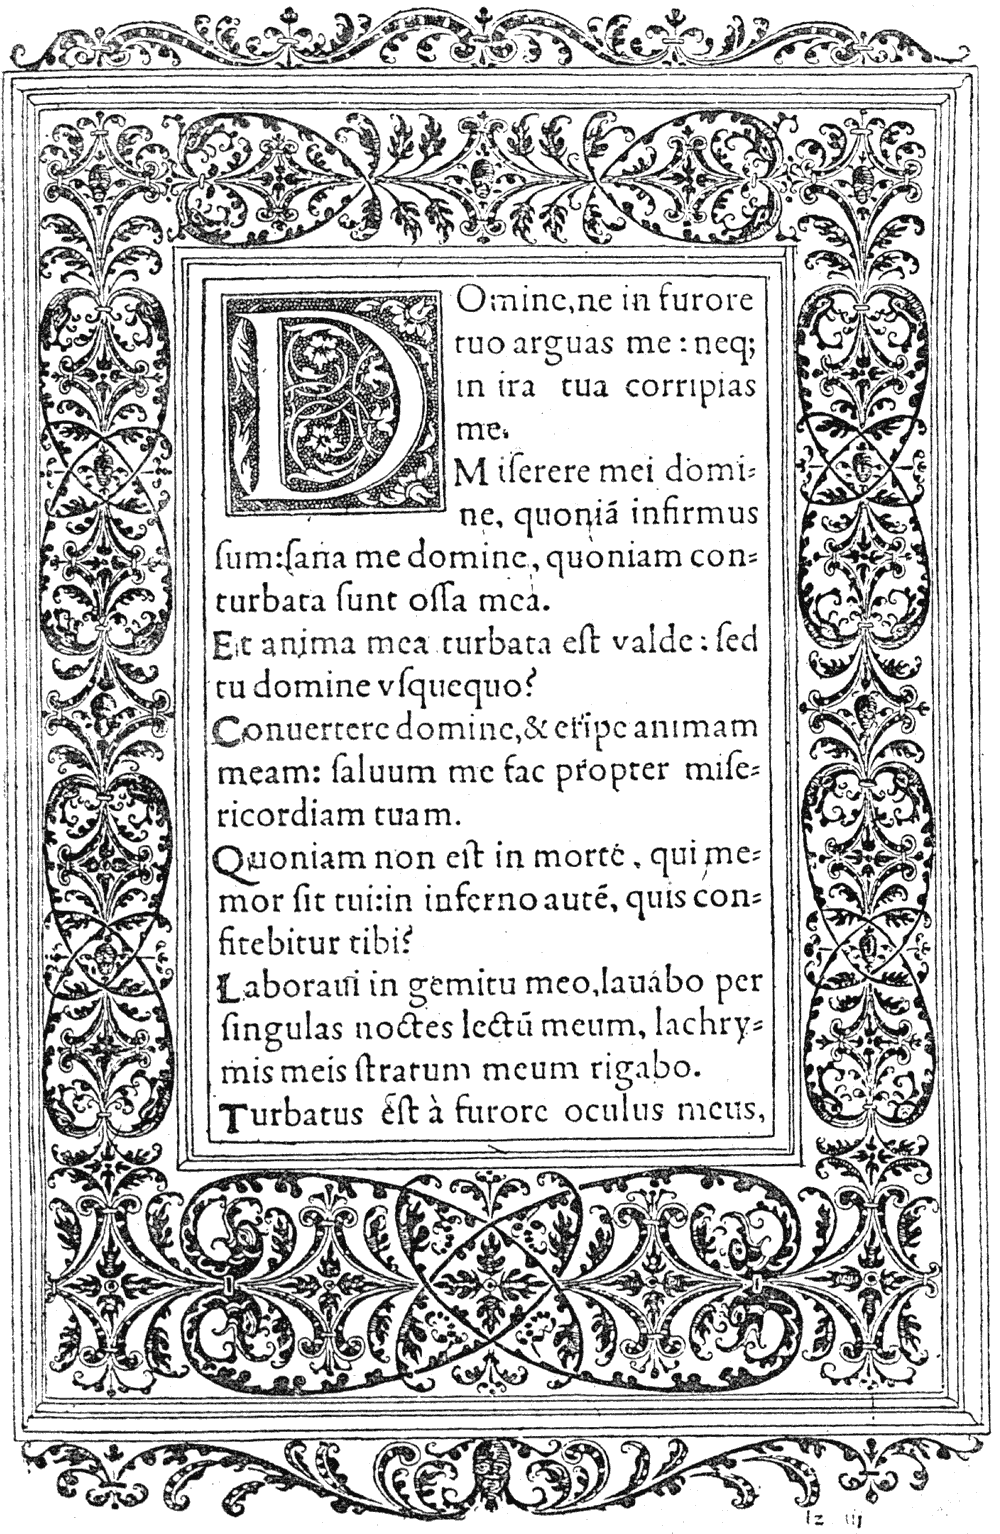 DOmine, ne in furore
tuo arguas me : neq;
in ira tua corripias
me.
Miſerere mei domi⸗
ne, quoniã infirmus
ſum:ſana me domine, quoniam con⸗
turbata ſunt oſſa mea.
Et anima mea turbata eſt valde : ſed
tu domine vſquequo?
Conuertere domine,& eripe animam
meam: ſaluum me fac propter miſe⸗
ricordiam tuam.
Quoniam non eſt in morte , qui me⸗
mor ſit tui:in inferno autẽ, quis con⸗
fitebitur tibi?
Laboraui in gemitu meo,lauabo per
ſingulas noctes lectũ meum, lachry⸗
mis meis ſtratum meum rigabo.
Turbatus eſt à furore oculus meus,